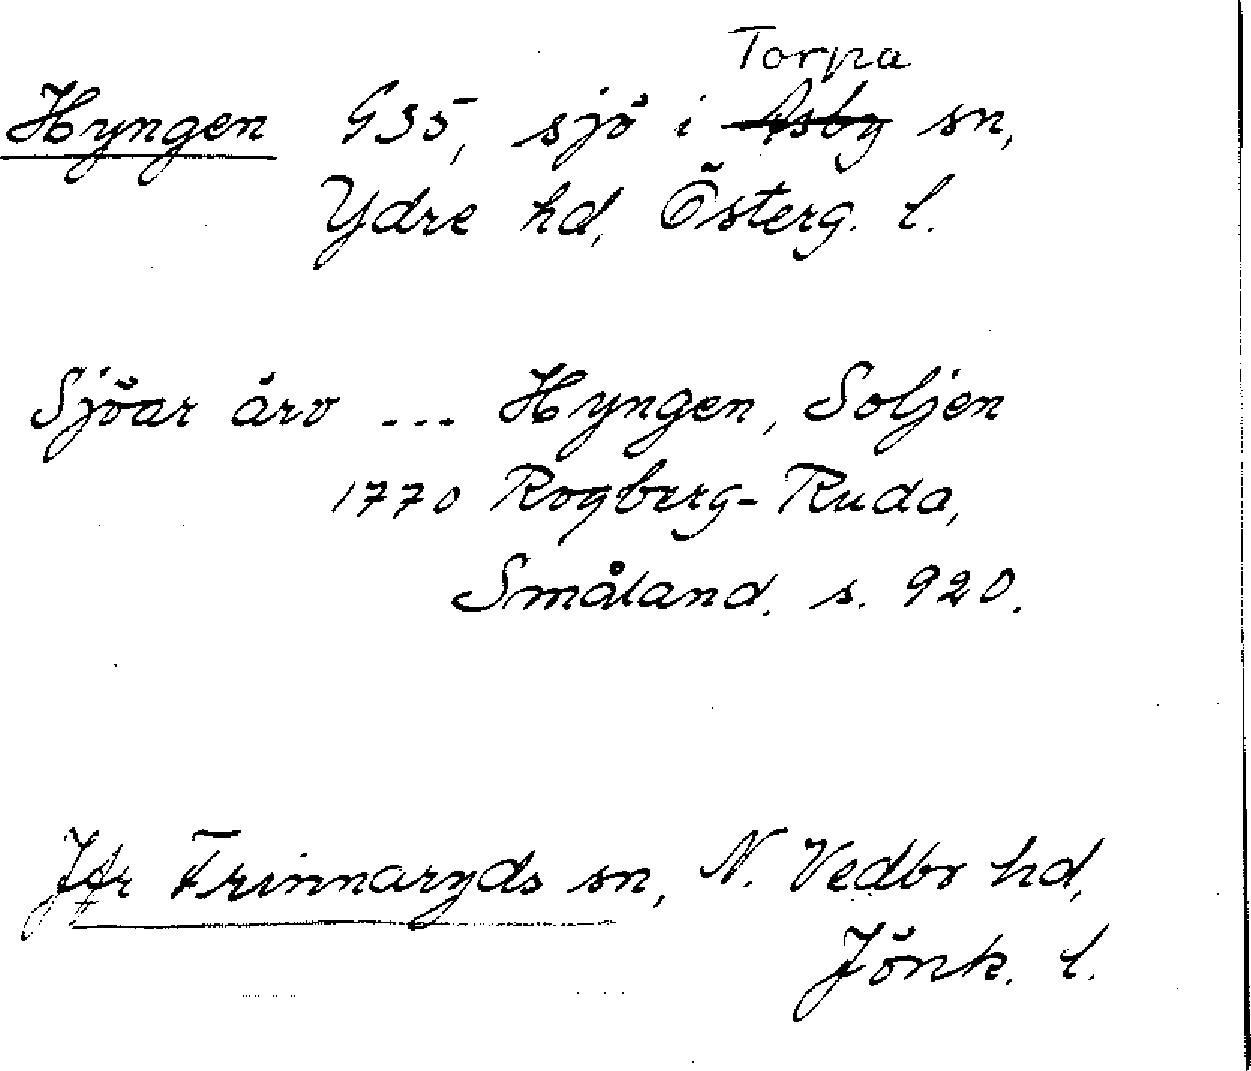 Torpa
Hyngen G35, sjö i Asby sn,
Ydre hd, Österg. l.
Sjöar äro ... Hyngen, Soljen
1770 Rogberg-Ruda,
Småland. s. 920.
Jfr Frinnaryds sn, N. Vedbo hd,
Jönk. l.